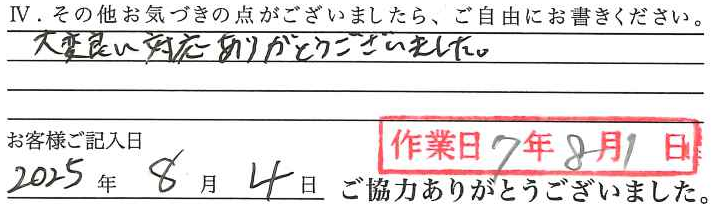 Ⅳ．その他お気づきの点がございましたら、ご自由にお書きください。
大変良い対応ありがとうございました。
お客様ご記入日
作業日 7年8月1日
2025年 8月 4日
ご協力ありがとうございました。